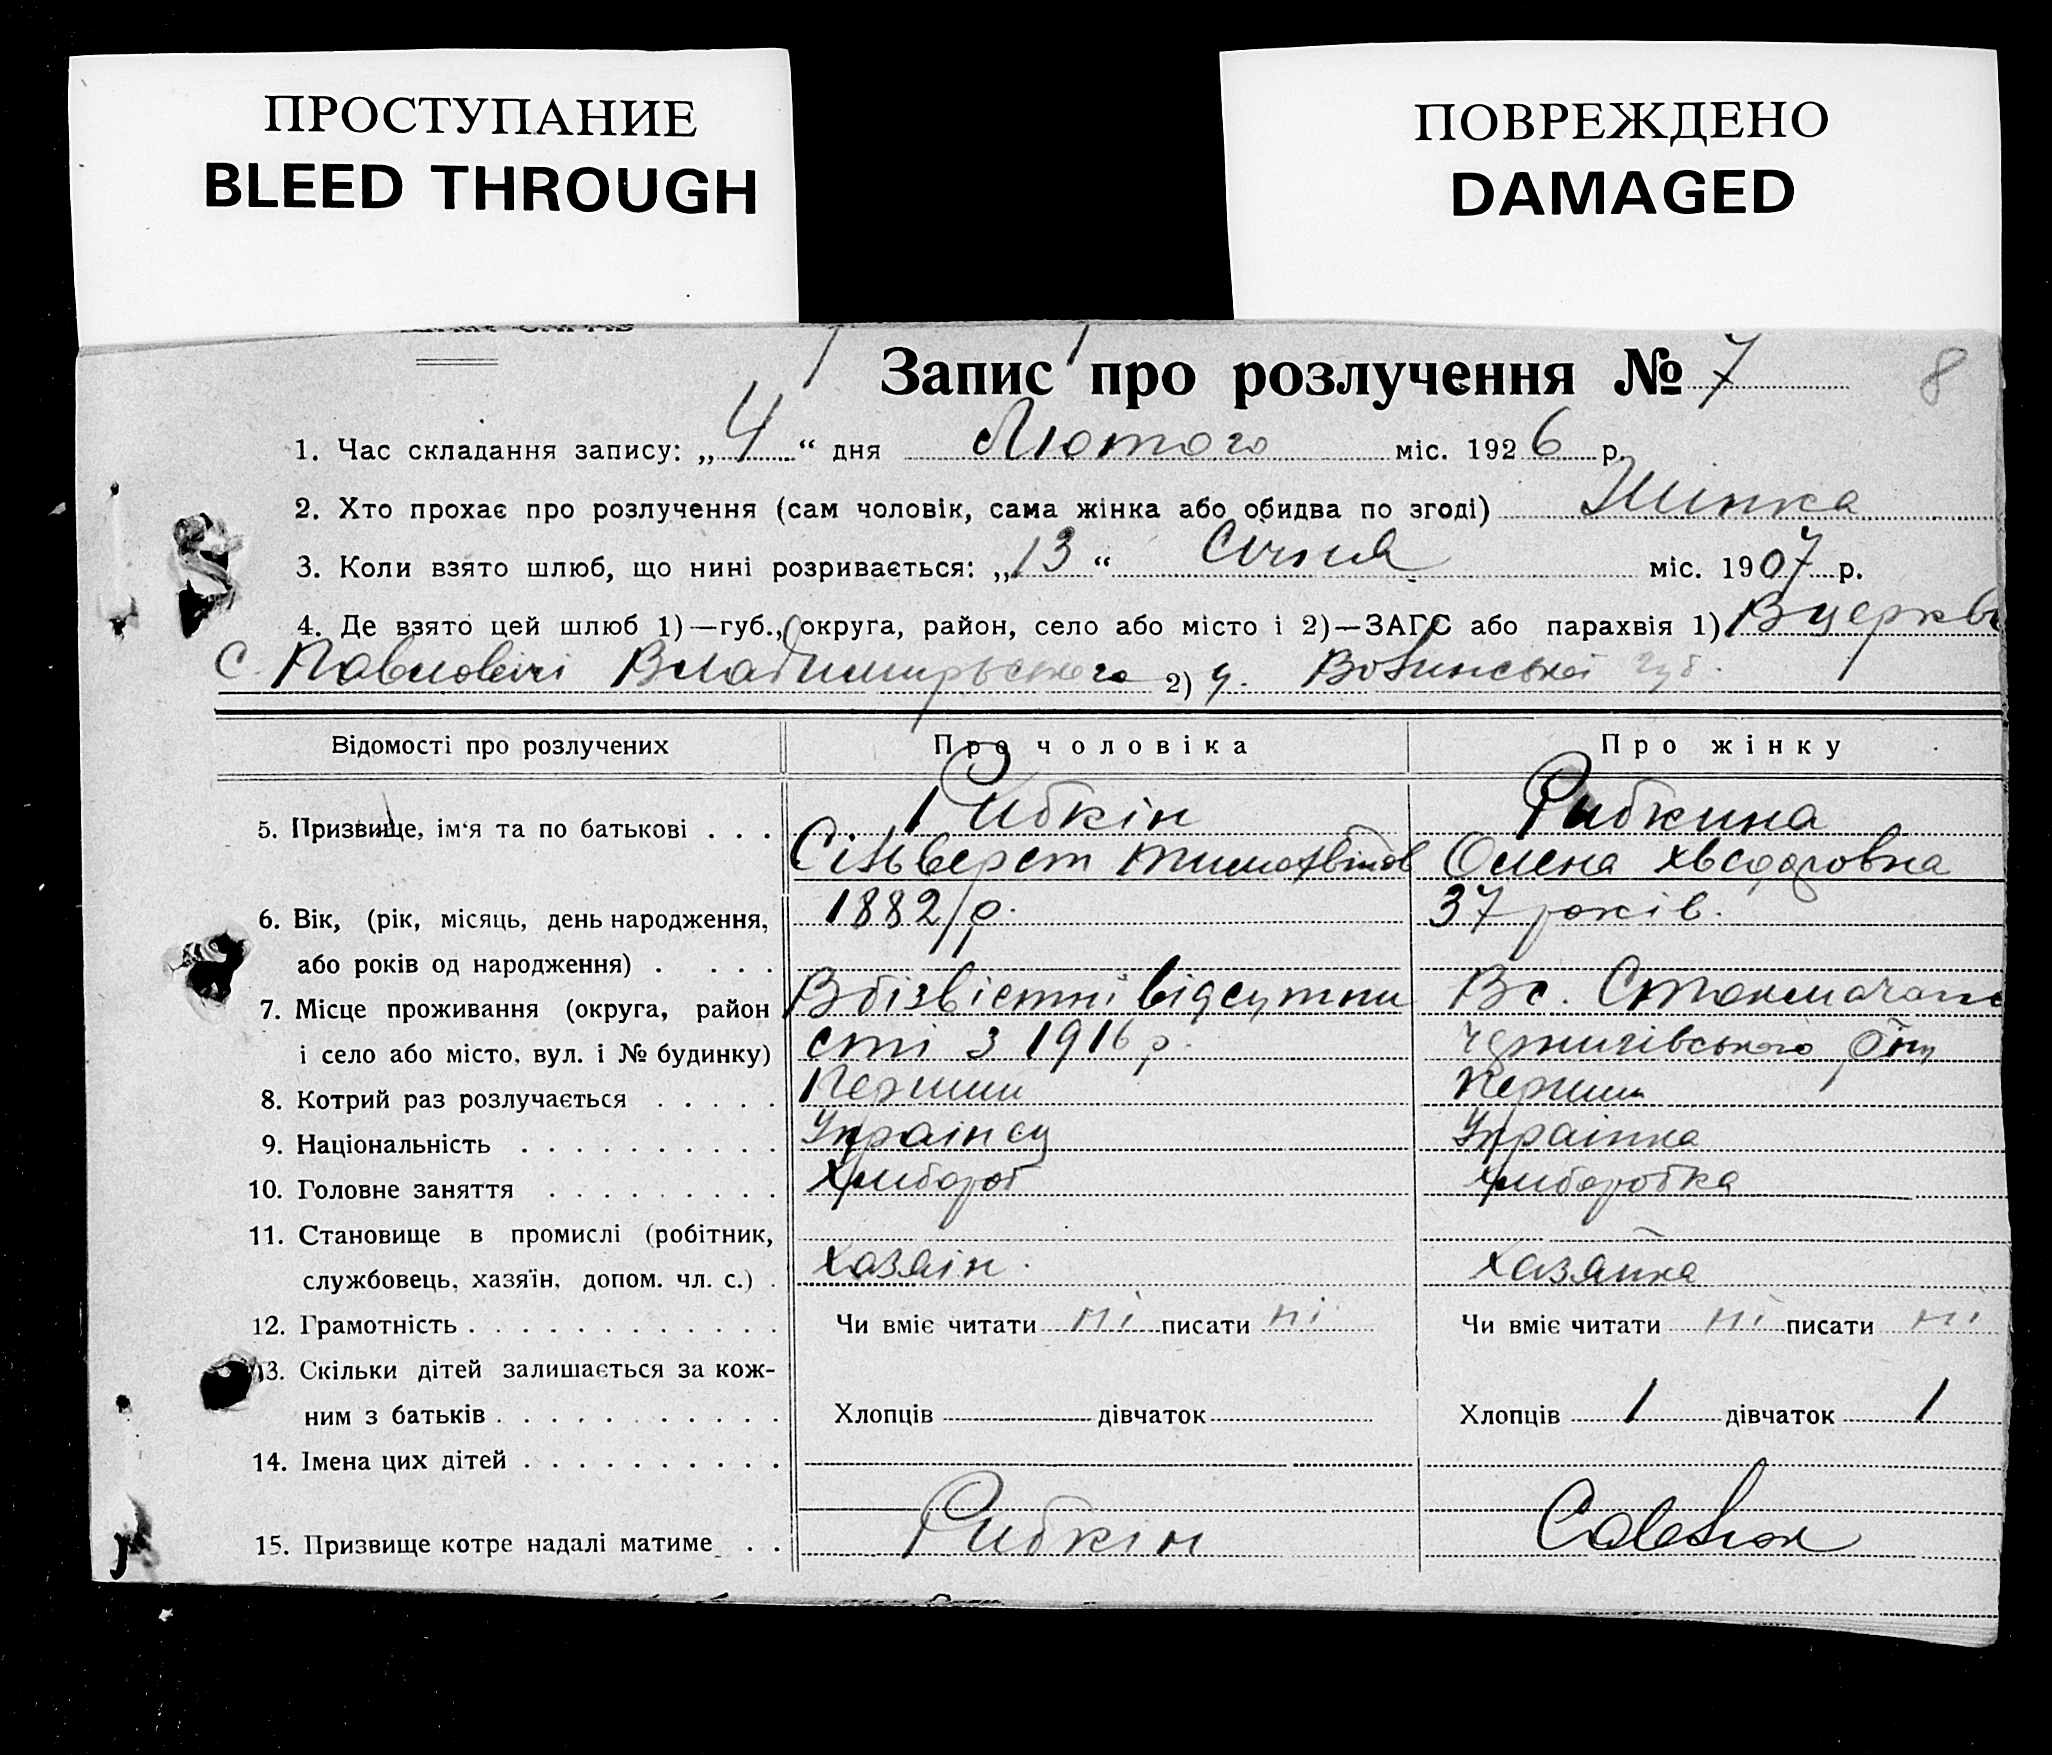 ПРОСТУПАНИЕ
BLEED THROUGH
ПОВРЕЖДЕНО
DAMAGED
Запис про розлучення № 7
8
1. Час складання запису: „4“ дня Лютого міс. 1926 р.
2. Хто прохає про розлучення (сам чоловік, сама жінка або обидва по згоді) Жінка
3. Коли взято шлюб, що нині розривається: „13“ Січня міс. 1907 р.
4. Де взято цей шлюб 1)—губ., округа, район, село або місто і 2)—ЗАГС або парахвія 1) В церкві
с. Павловічі Владимирського 2) у. Волинської губ.
Відомості про розлучених Про чоловіка Про жінку
5. Призвище, ім'я та по батькові . . . Рибкін Рибкина
Сільверст Олена Хведоровна
6. Вік, (рік, місяць, день народження, 1882 р. 37 років.
або років од народження) . . . .
7. Місце проживання (округа, район В бізвістні відсутни В с.
і село або місто, вул. і № будинку) сті з 1916 р. Чернигівського
8. Котрий раз розлучається . . . . . Перши Перши
9. Національність . . . . . . . . . . Украінец Украінка
10. Головне заняття . . . . . . . . . Хлибороб Хлиборобка
11. Становище в промислі (робітник,
службовець, хазяїн, допом. чл. с.) . Хазяін. Хазяйка
12. Грамотність . . . . . . . . . . . . Чи вміє читати ні писати ні Чи вміє читати ні писати ні
13. Скільки дітей залишається за кож-
ним з батьків . . . . . . . . . . . Хлопців дівчаток Хлопців 1 дівчаток 1
14. Імена цих дітей . . . . . . . . . .
15. Призвище котре надалі матиме . . Рибкін